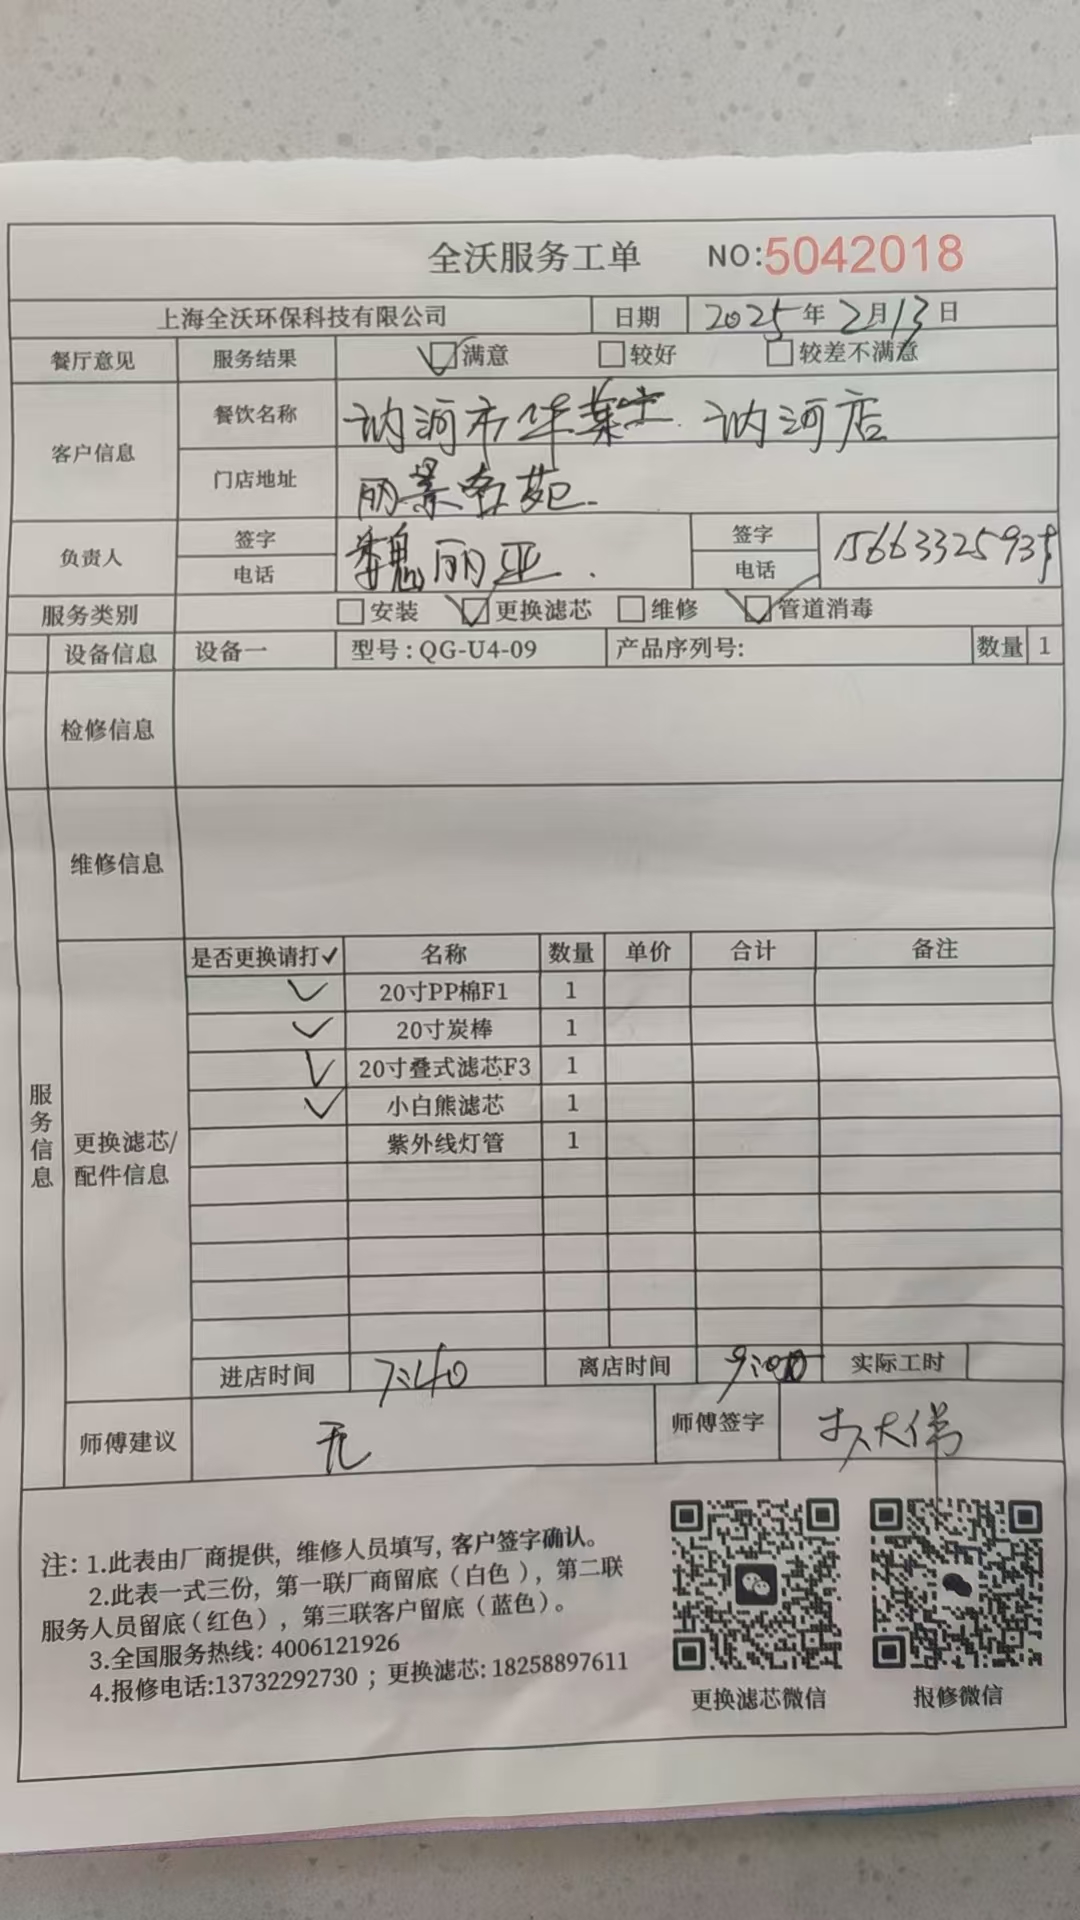 全沃服务工单 NO:5042018
上海全沃环保科技有限公司 日期 2025年2月13日
餐厅意见 服务结果 ✓满意 □较好 □较差不满意
客户信息 餐饮名称 讷河市华莱士 讷河店
门店地址 丽景名苑
负责人 签字 魏丽亚 签字
电话 电话 1566332593
服务类别 □安装 ✓更换滤芯 □维修 ✓管道消毒
设备信息 设备一 型号:QG-U4-09 产品序列号: 数量 1
检修信息
维修信息
服务信息
更换滤芯/配件信息
是否更换请打✓ 名称 数量 单价 合计 备注
✓ 20寸PP棉F1 1
✓ 20寸炭棒 1
✓ 20寸叠式滤芯F3 1
✓ 小白熊滤芯 1
紫外线灯管 1
进店时间 7:40 离店时间 9:00 实际工时
师傅建议 无 师傅签字
注: 1.此表由厂商提供, 维修人员填写, 客户签字确认。
2.此表一式三份, 第一联厂商留底(白色), 第二联
服务人员留底(红色), 第三联客户留底(蓝色)。
3.全国服务热线: 4006121926
4.报修电话:13732292730 ; 更换滤芯: 18258897611
更换滤芯微信 报修微信